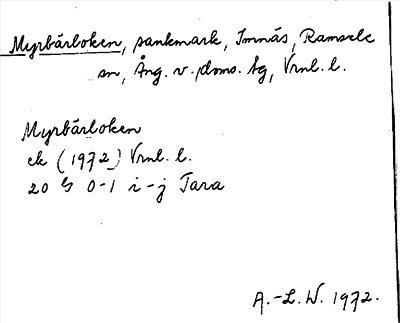 Myrbärloken, sankmark, Imnäs, Ramsele
sn, Ång. v. doms. tg, Vrnl. l.
Myrbärloken
ek (1972) Vrnl. l.
20 G 0-1 i-j Tara
A.-L. W. 1972.